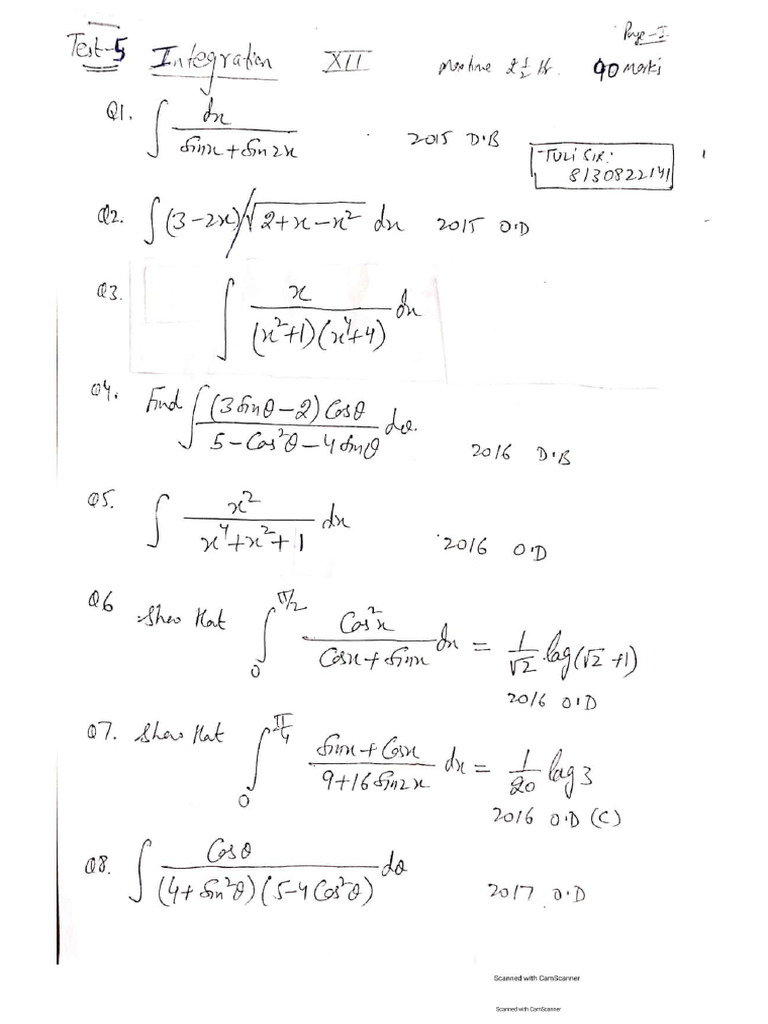 Page-I
Test-5 Integration XII Max time 2½ Hr. 90 marks
Q1. ∫ dx / (sinx + sin2x) 2015 D.B
TULI SIR:
8130822141
Q2. ∫ (3-2x) √(2+x-x²) dx 2015 O.D
Q3. ∫ x / ((x²+1)(x⁴+4)) dx
Q4. Find ∫ (3sinθ-2) Cosθ / (5-Cos²θ-4sinθ) dθ. 2016 D.B
Q5. ∫ x² / (x⁴+x²+1) dx 2016 O.D
Q6 Show that ∫₀^(π/2) Cos²x / (Cosx+sinx) dx = 1/√2 log(√2+1)
2016 O.D
Q7. Show that ∫₀^(π/4) (sinx+Cosx) / (9+16sin2x) dx = 1/20 log3
2016 O.D (C)
Q8. ∫ Cosθ / ((4+sin²θ)(5-4Cos²θ)) dθ 2017 O.D
Scanned with CamScanner
Scanned with CamScanner